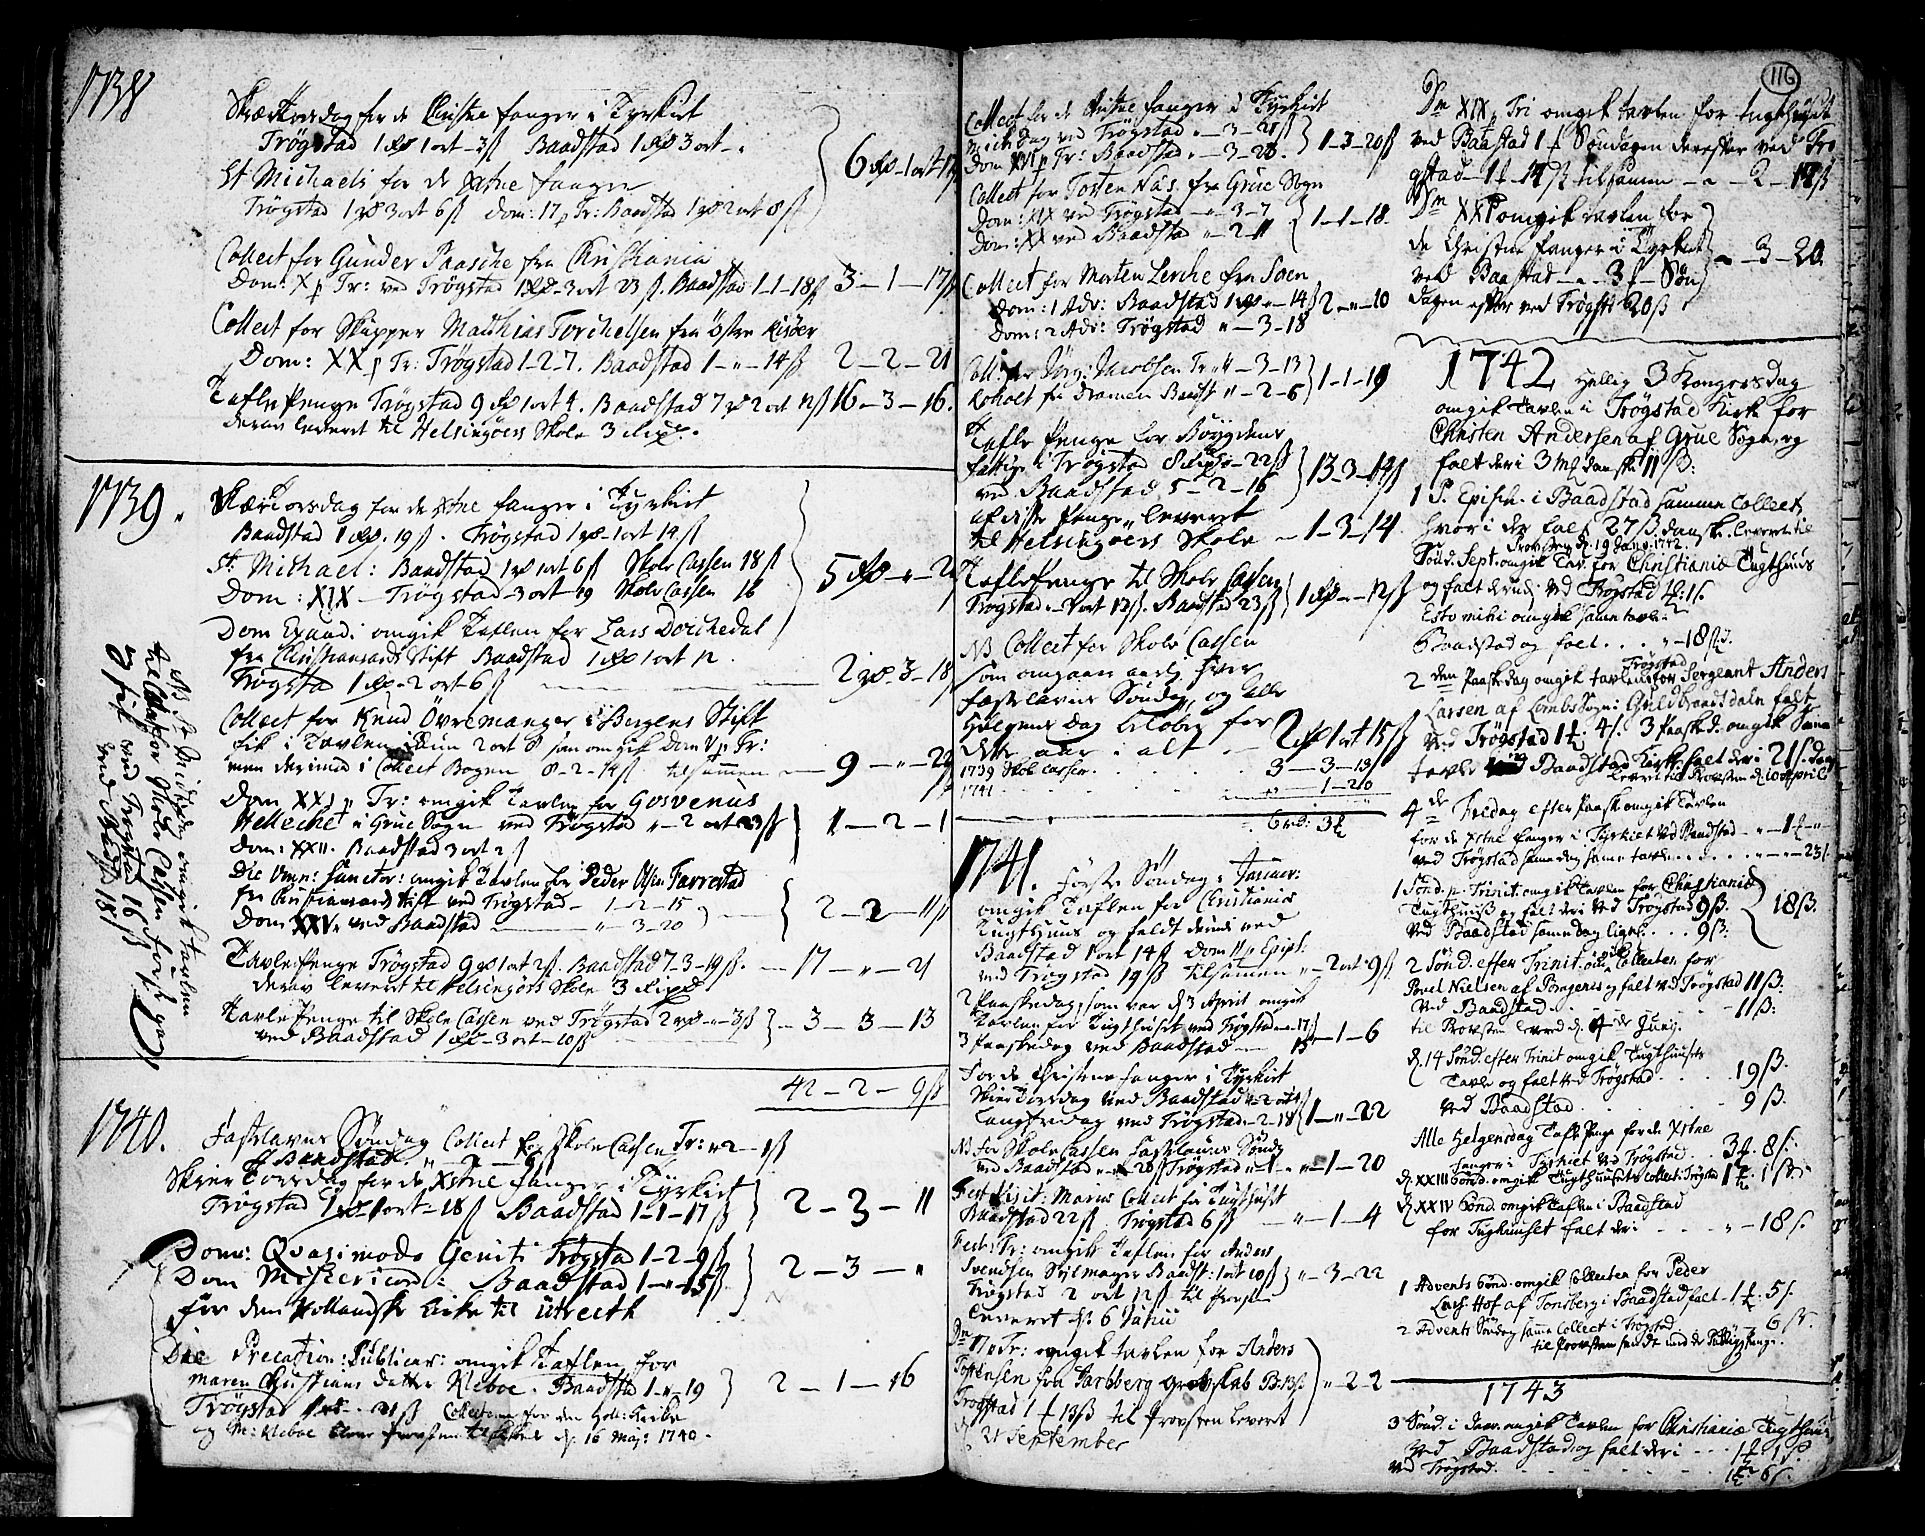 1738
Skærtorsdag for de Christne fanger i Tyrkiet
Trögstad 1 rd 1 ort - 3 ß Baadstad 1 rd 3 ort - "
6 rd - 1 ort - 17 ß
St Michaels for de xstne fanger
Trögstad 1 rd 3 ort 6 ß dom: 17 p Tr: Baadstad 1 rd 2 ort 8 ß
Collect for Gunder Paasche fra Christiania
Dom: X p Tr: ved Trögstad 1 rd - 3 ort 23 ß. Baadstad 1-1-18 ß 3-1-17 ß
Collect for Skipper Matthias Torchelsen fra Östre Risöer
Dom: XX p Tr: Trögstad 1-2-7. Baadstad 1-"-14 ß 2-2-21
Tafle Penge Trögstad 9 rd 1 ort 4. Baadstad 7 rd 2 ort 12 ß 16-3-16.
derav leveret til Helsingöers Skole 3 rixd.
1739.
Skærtorsdag for de xstne fanger i Tyrkiet
Baadstad 1 rd. 19 ß. Trögstad 1 rd - 1 ort 14 ß
St. Michael: Baadstad 1 rd 1 ort 6 ß Skole Cassen 18 ß
5 rd - " - 2
Dom: XIX - Trögstad - 3 ort - 19 Skole Cassen 16
Dom Exaudi omgik Taflen for Lars Dorchedal
fra Christiansands Stift Baadstad 1 rd 1 ort 12.
Trögstad 1 rd - 2 ort 6 ß 2 rd 3-18
Collect for Knud Övremanger i Bergens Stift
fik i Tavlen ikun 2 ort 8 som omgik Dom V p Tr:
men derimod i Collect Bogen 8-2-14 ß tilsammen - 9-"-22
Dom XXI p Tr: omgik Tavlen for Gosvenus
Helleche i Grue Sogn ved Trögstad "-2 ort 23 ß 1-2-1
Dom: XXII. Baadstad 3 ort 2 ß
Die Omn: Sanctor: omgik Tavlen for Peder Olsen Farrestad
fra Christiansand Stift ved Trögstad - 1-2-15
2-2-11 ß
Dom XXV. ved Baadstad "-3-20
Tavle Penge Trögstad 9 rd 1 ort 2 ß. Baadstad 7-3-19 ß. - 17-"-21
derav levert til Helsingörs Skole 3 rixd
Tavle Penge til Skole Cassen ved Trögstad 2 rd-"-3 ß
- 3-3-13
ved Baadstad 1 rd - 3 ort - 10 ß
42-2-9 ß
NB St Michelsdag omgik Tavlen
for Skole Cassen först gang
og fik ved Trögstad 16 ß
ved Baadst 18 ß
1740.
Fastelavns Söndag Collect for Skole Cassen Tr: "-2-1 ß
Baadstad "-2-9
Skiertorsdag for de Xstne fanger i Tyrkiet
Trögstad 1 rd 1 ort - 18 ß Baadstad 1-1-17 ß 2-3-11
Dom: Quasimodo Geniti Trögstad 1-2-9 ß
2-3-"
Dom Misericord: Baadstad 1-"-15 ß
for den Hollandske kirke til Utrecth
Die Precation: Publicar: omgik Taflen for
maren Christians datter Kleboe. Baadstad 1-"-19
2-1-16
Trögstad 1 rd - 21 ß Collecterne for den Holl: kirke
og M: Kleboe til provsten d. 16 Maj: 1740.
Collect for de Christne fanger i Tyrkiet
Micheldag ved Trögstad "-3-20 ß
1-3-20 ß
Dom XVI p Tr: Baadstad "-3-20.
Collect for Tosten Näs. fra Grue Sogn
Dom: XIX ved Trögstad - "-3-7
1-1-18.
Dom: XX ved Baadstad "-2-11
Collect for Morten Lerche fra Soen
Dom: 1 Adv: Baadstad 1 rd "-14 ß 2-"-10
Dom: 2 Adv: Trögstad "-3-18
Coll: for Jörg: Jacobsen Tr "-3-13
1-1-19
Roholt fra Dramen Baadst "-2-6
Tafle Penge for Böygdens
fattige i Trögstad 8 rixd - 22 ß
13-3-14 ß
ved Baadstad 5-2-16
af disse Penge leveret
til Helsingöers Skole - 1-3-14.
Tafle Penge til Skole Cassen
Trögstad - " ort 13 ß. Baadstad 23 ß 1 rd - " - 12 ß
NB Collect for Skole Cassen
som omgaar aarlig hver
Fastelavns Söndag og Alle
Helgens Dag belober for
dette aar i alt - 2 rd 1 ort 15 ß
1739 Skole Cassen 3-3-13
1741 "-1-20
6 rd: 3
1741. Förste Söndag i Januar:
omgik Taflen for Christiania
Tugthuus og faldt derudi ved
Baadstad 1 ort 14 ß Dom II p Epiph:
ved Trögstad 19 ß tilsammen "-2 ort 9 ß
2 Paaskedag som var d 3 April omgik
Tavlen for Tugthuset ved Trögstad - 17
-1-6
3 Paaskedag ved Baadstad 13
For de Christne fanger i Tyrkiet
Skiertorsdag ved Baadstad "-2 ort 4
1-"-22
Langfredag ved Trögstad - 2-18
NB For Skole Cassen Fastelauns Sönd
ved Baadstad "-" 20 ß Trögstad "-1-" "-1-20
Fest Visit: Mariæ Collect for Tugthuset
Baadstad 22 ß. Trögstad 6 ß "-1-4
Fest: Tr: omgik Taflen for Anders
Svendsen Seylmager Baadst: 1 ort 10 ß "-3-22
Trögstad 2 ort 12 ß til provsten
leveret d: 6 Junii
Dm IV p Tr: omgik tavlen for Anders
Tostensen fra Jarlsberg Grevskab B: 13 ß "-2-2
Trögstad 1 13 ß til Provsten leveret
d. 21 September
116
Dm XIX p Tri omgik tavlen for tugthuset
ved Baastad 1 Söndagen derefter ved Trö
gstad 1 - 14 ß tilsamen - " - 2 - 14 ß
Dm XXI omgik tavlen for
de Christne fanger i Tyrkiet
"-3-20
ved Baastad - " - 3 - Sön
dagen efter ved Trögst: 20 ß
1742 Hellig 3 Kongersdag
omgik Tavlen i Trögstad Kirk for
Christen Andersen af Grue Sogn, og
falt deri 3 mk danske 11 ß:
1 S. Epiph. i Baadstad samme Collect
hvori der falt 27 ß danske. levert til
Provsten d. 19 Janv: 1742.
Söud. Sept. omgik Tav. for Christianiæ Tugthuus
og falt derudj ved Trögstad 1: 1 ß.
Esto mihi omgik same tavle i
Baadstad og falt "-18 ß d.
2den Paaskedag omgik tavlen Trögstad for Sergeant Anders
Larsen af Lombs Sogn i Guldbrandsdalen falt
ved Trögstad 1. 4 ß. 3 Paasked. omgik same
tavle Baadstad Kirk. falt der i 21 ß. danske
levert til Provsten d. 10 April
4de Fredag efter Paask omgik Tavlen
for de xstne fanger i Tyrkiet ved Baadstad - "-1-"
ved Trögstad samedag same tavle "-"-23 ß
1 Sönd. p. Trinit. omgik tavlen for Christianiæ
Tugthuuß og falt der i ved Trögstad 9 ß.
18 ß.
ved Baadstad same dag ligel. 9 ß.
2 Sönd. efter Trinit. omgik Collecten for
Povel Nielsen af Porsgrund og falt ved Trögstad 11 ß.
ved Baadstad 11 ß:
til Provsten levered d. 4de Junij.
d. 14 Sönd. efter Trinit omgik Tugthuusets
Tavle og falt ved Trögstad 19 ß.
ved Baadstad 9 ß.
Alle Helgensdag Tafle Penge for de xstne
fanger i Tyrkiet ved Trögstad 3. 8 ß.
d. XXIII Sönd. omgik Tugthuusets Collect i Trögstad 1. 1 ß.
d. XXIV Sönd. omgik Taflen i Baadstad
for Tugthuuset falt deri "-18 ß.
1 Advents Sönd. omgik Collecten for Peder
Lars: Hof af Tonsberg i Baadstad falt - 1: 5 ß.
2 Advents Söndag samme Collect i Trögstad. "-6 ß.
til Provsten sendt med de Fattiges Penge.
1743
3 Sönd. i Janv. omgik Tavlen for Christianiæ Tugthuus
ved Baadstad og falt der i 1. 1 ß.
ved Trögstad. 1. 6 ß.